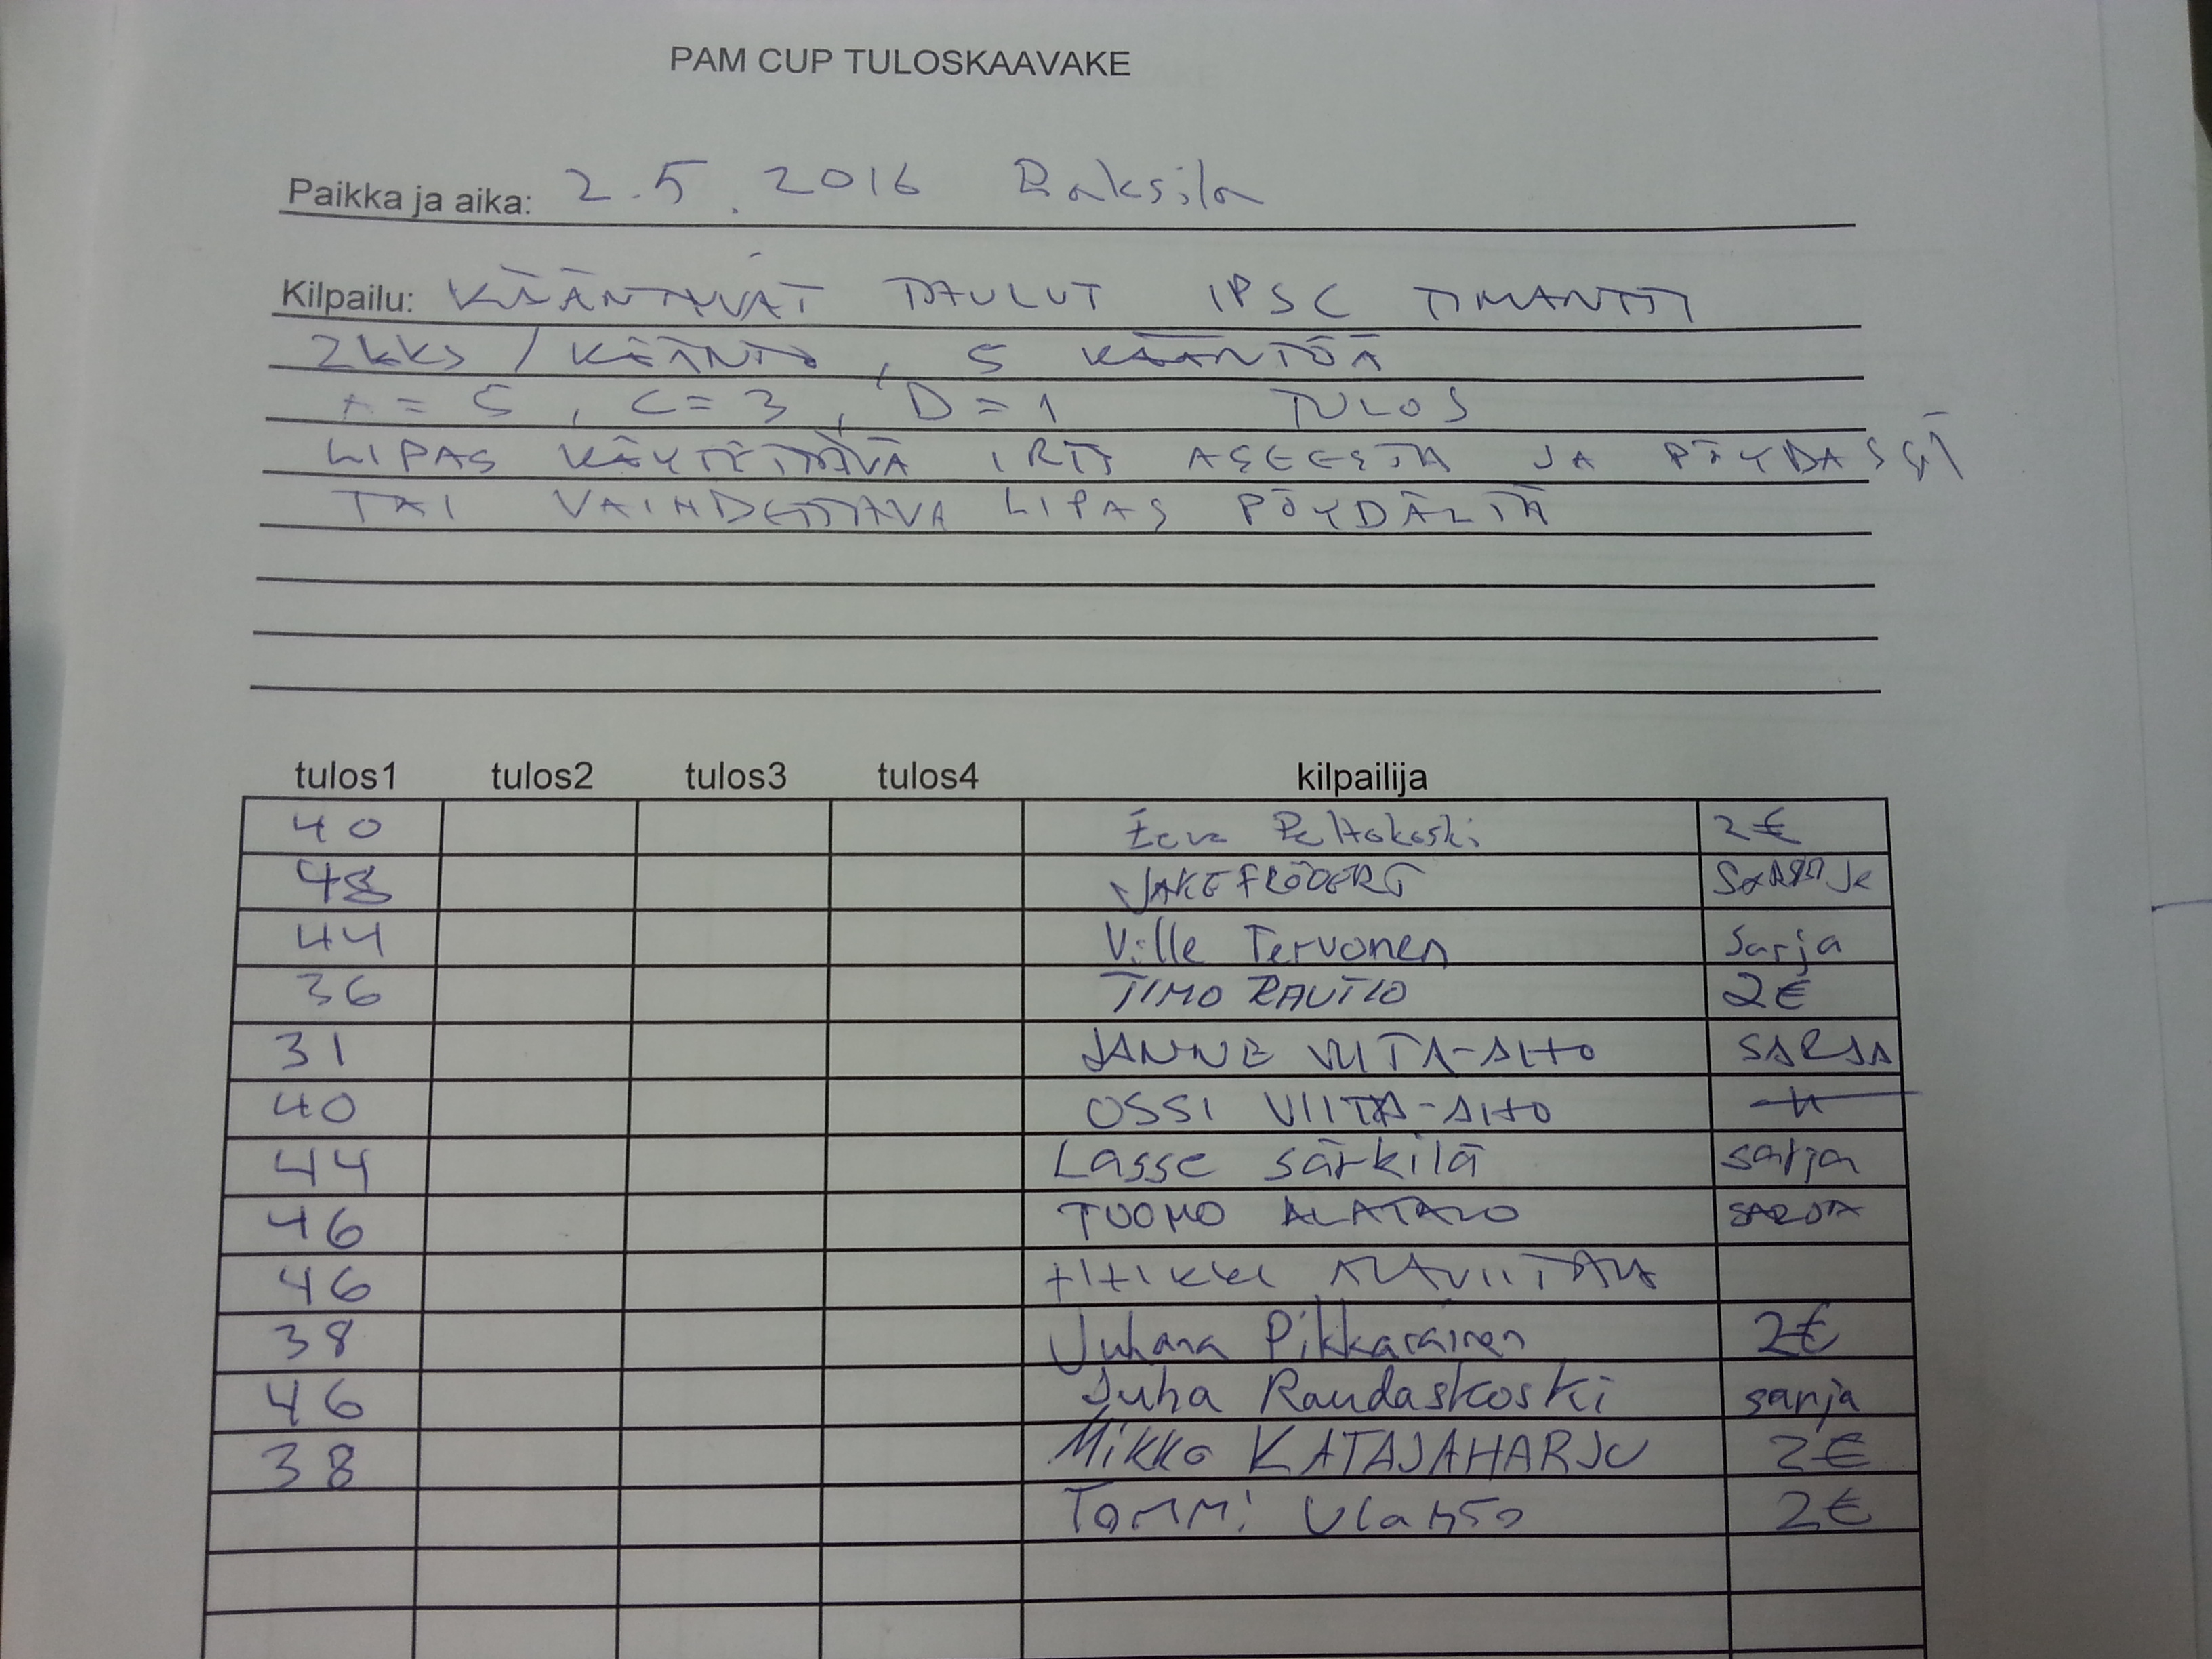 PAM CUP TULOSKAAVAKE
Paikka ja aika: 2.5.2016 Raksila
Kilpailu: KÄÄNTYVÄT TAULUT IPSC TIMANTTI
2kks / KÄÄNTÖ, 5 KÄÄNTÖÄ
A = 5, C = 3, D = 1 TULOS
LIPAS KÄYTETTÄVÄ IRTI ASEESTA JA PÖYDÄSSÄ
TAI VAIHDETTAVA LIPAS PÖYDÄLTÄ
tulos1 tulos2 tulos3 tulos4 kilpailija
40 Eeva Peltokoski 2€
48 JAKE FRÖBERG
44 Ville Tervonen Sarja
36 TIMO RAUTIO 2€
31 JANNE VIITA-AHO SARJA
40 OSSI VIITA-AHO
44 Lasse Särkilä sarja
46 TUOMO ALATALO SARJA
46 HEIKKI ALAVIITALA
38 Juhana Pikkarainen 2€
46 Juha Raudaskoski sarja
38 Mikko KATAJAHARJU 2€
Tommi 2€